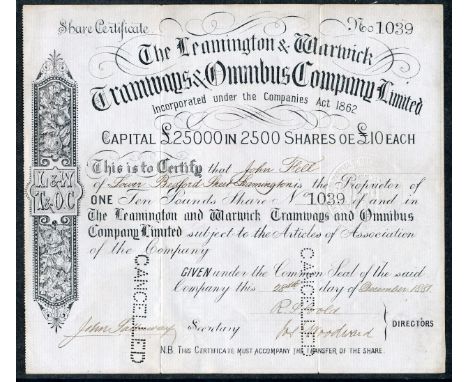 Share Certificate
No 1039
The Leamington & Warwick
Tramways & Omnibus Company Limited
Incorporated under the Companies Act 1862
CAPITAL £25000 IN 2500 SHARES OF £10 EACH
This is to Certify that John Fell
of Lower Bedford Street Leamington is the Proprietor of
ONE Ten Pounds Share No 1039 of and in
THE LEAMINGTON AND WARWICK TRAMWAYS AND OMNIBUS
COMPANY LIMITED subject to the Articles of Association
of the Company
L & W
T & O C
GIVEN under the Common Seal of the said
Company this 28th day of December 1881
CANCELLED
CANCELLED
John Greenway Secretary
Woodward
DIRECTORS
N.B. THIS CERTIFICATE MUST ACCOMPANY THE TRANSFER OF THE SHARE.